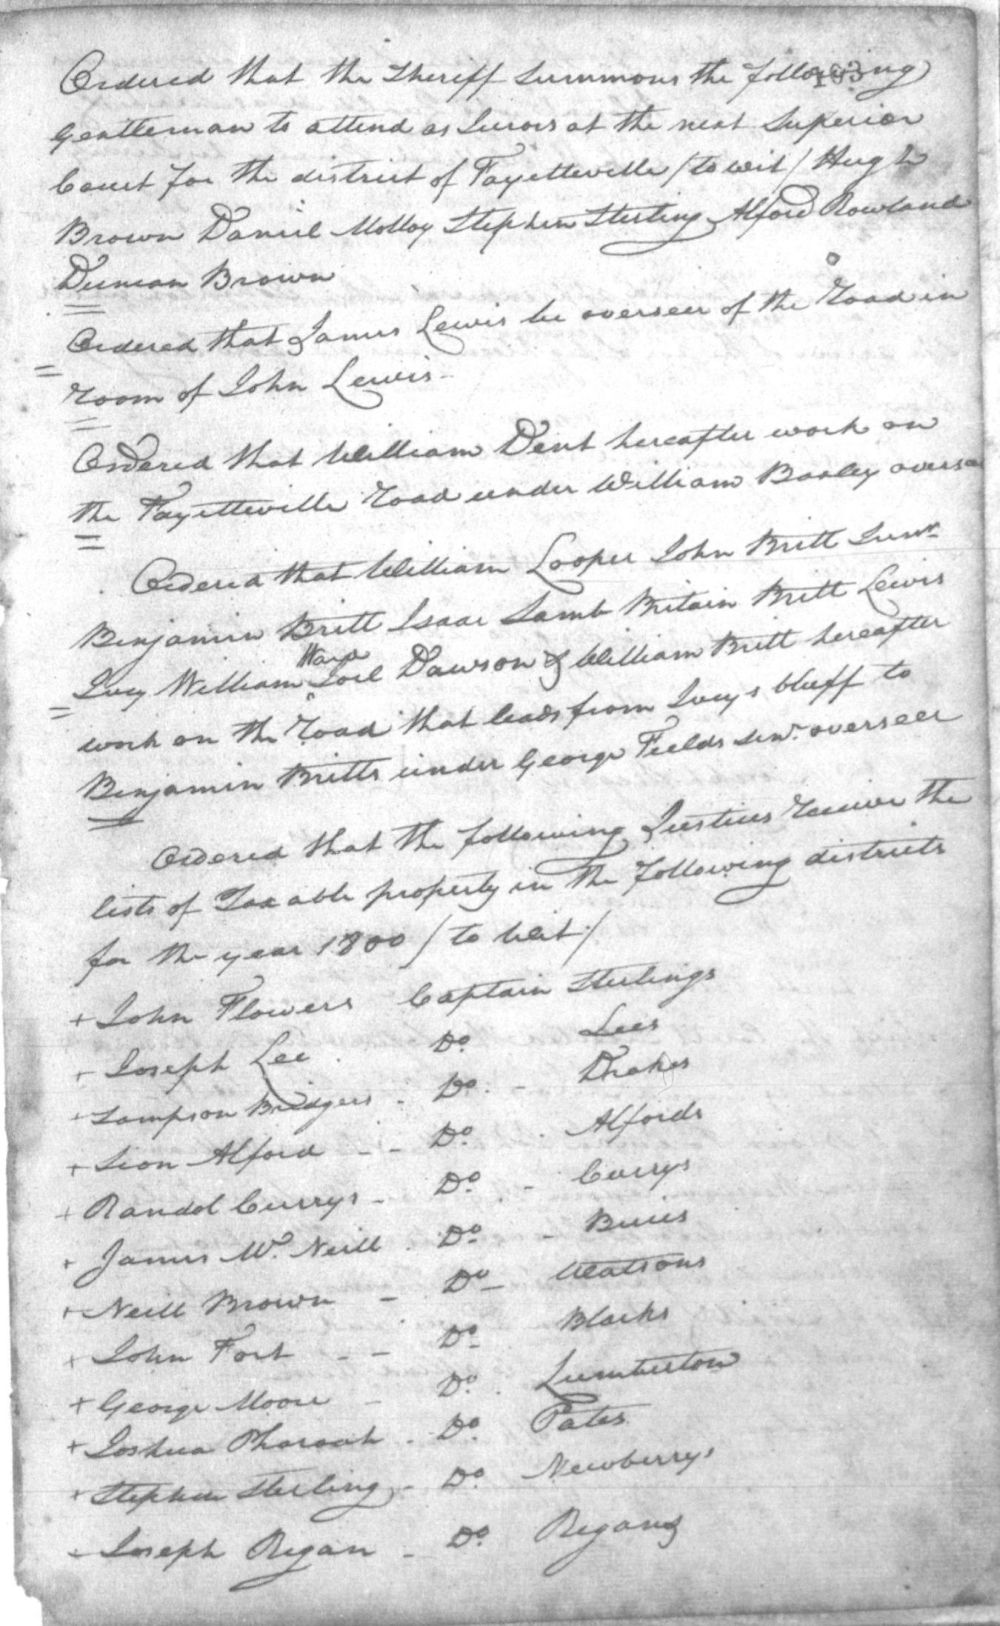 Ordered that the Sheriff Summons the following
193
Gentleman to attend as Jurors at the next Superior
Court for the district of Fayetteville / to wit / Hugh
Brown Daniel Molloy Stephen Sterling Alford Rowland
Duncan Brown
Ordered that James Lewis be overseer of the Road in
room of John Lewis
Ordered that William Dent hereafter work on
the Fayetteville Road under William Bailey overseer
Ordered that William Looper John Britt Junr
Benjamin Britt Isaac Lamb Britain Britt Lewis
Ivey William Joel Dawson & William Britt hereafter
work on the Road that leads from Iveys bluff to
Benjamin Britts under George Fields senr. overseer
Ordered that the following Justices receive the
lists of Taxable property in the following districts
for the year 1800 / to Wit /
+ John Flowers Captain Sterlings
+ Joseph Lee Do Lees
+ Sampson Bridgers - Do - Drakes
+ Sion Alford - - Do Alfords
+ Randol Currys - Do - Currys
+ James McNeill Do - Buies
+ Neill Brown - Do - Watsons
+ John Fort - - Do Blacks
+ George Moore - Do Lumberton
+ Joshua Pharoah Do Pates
+ Stephen Sterling - Do Newberrys
+ Joseph Regan - Do Regans